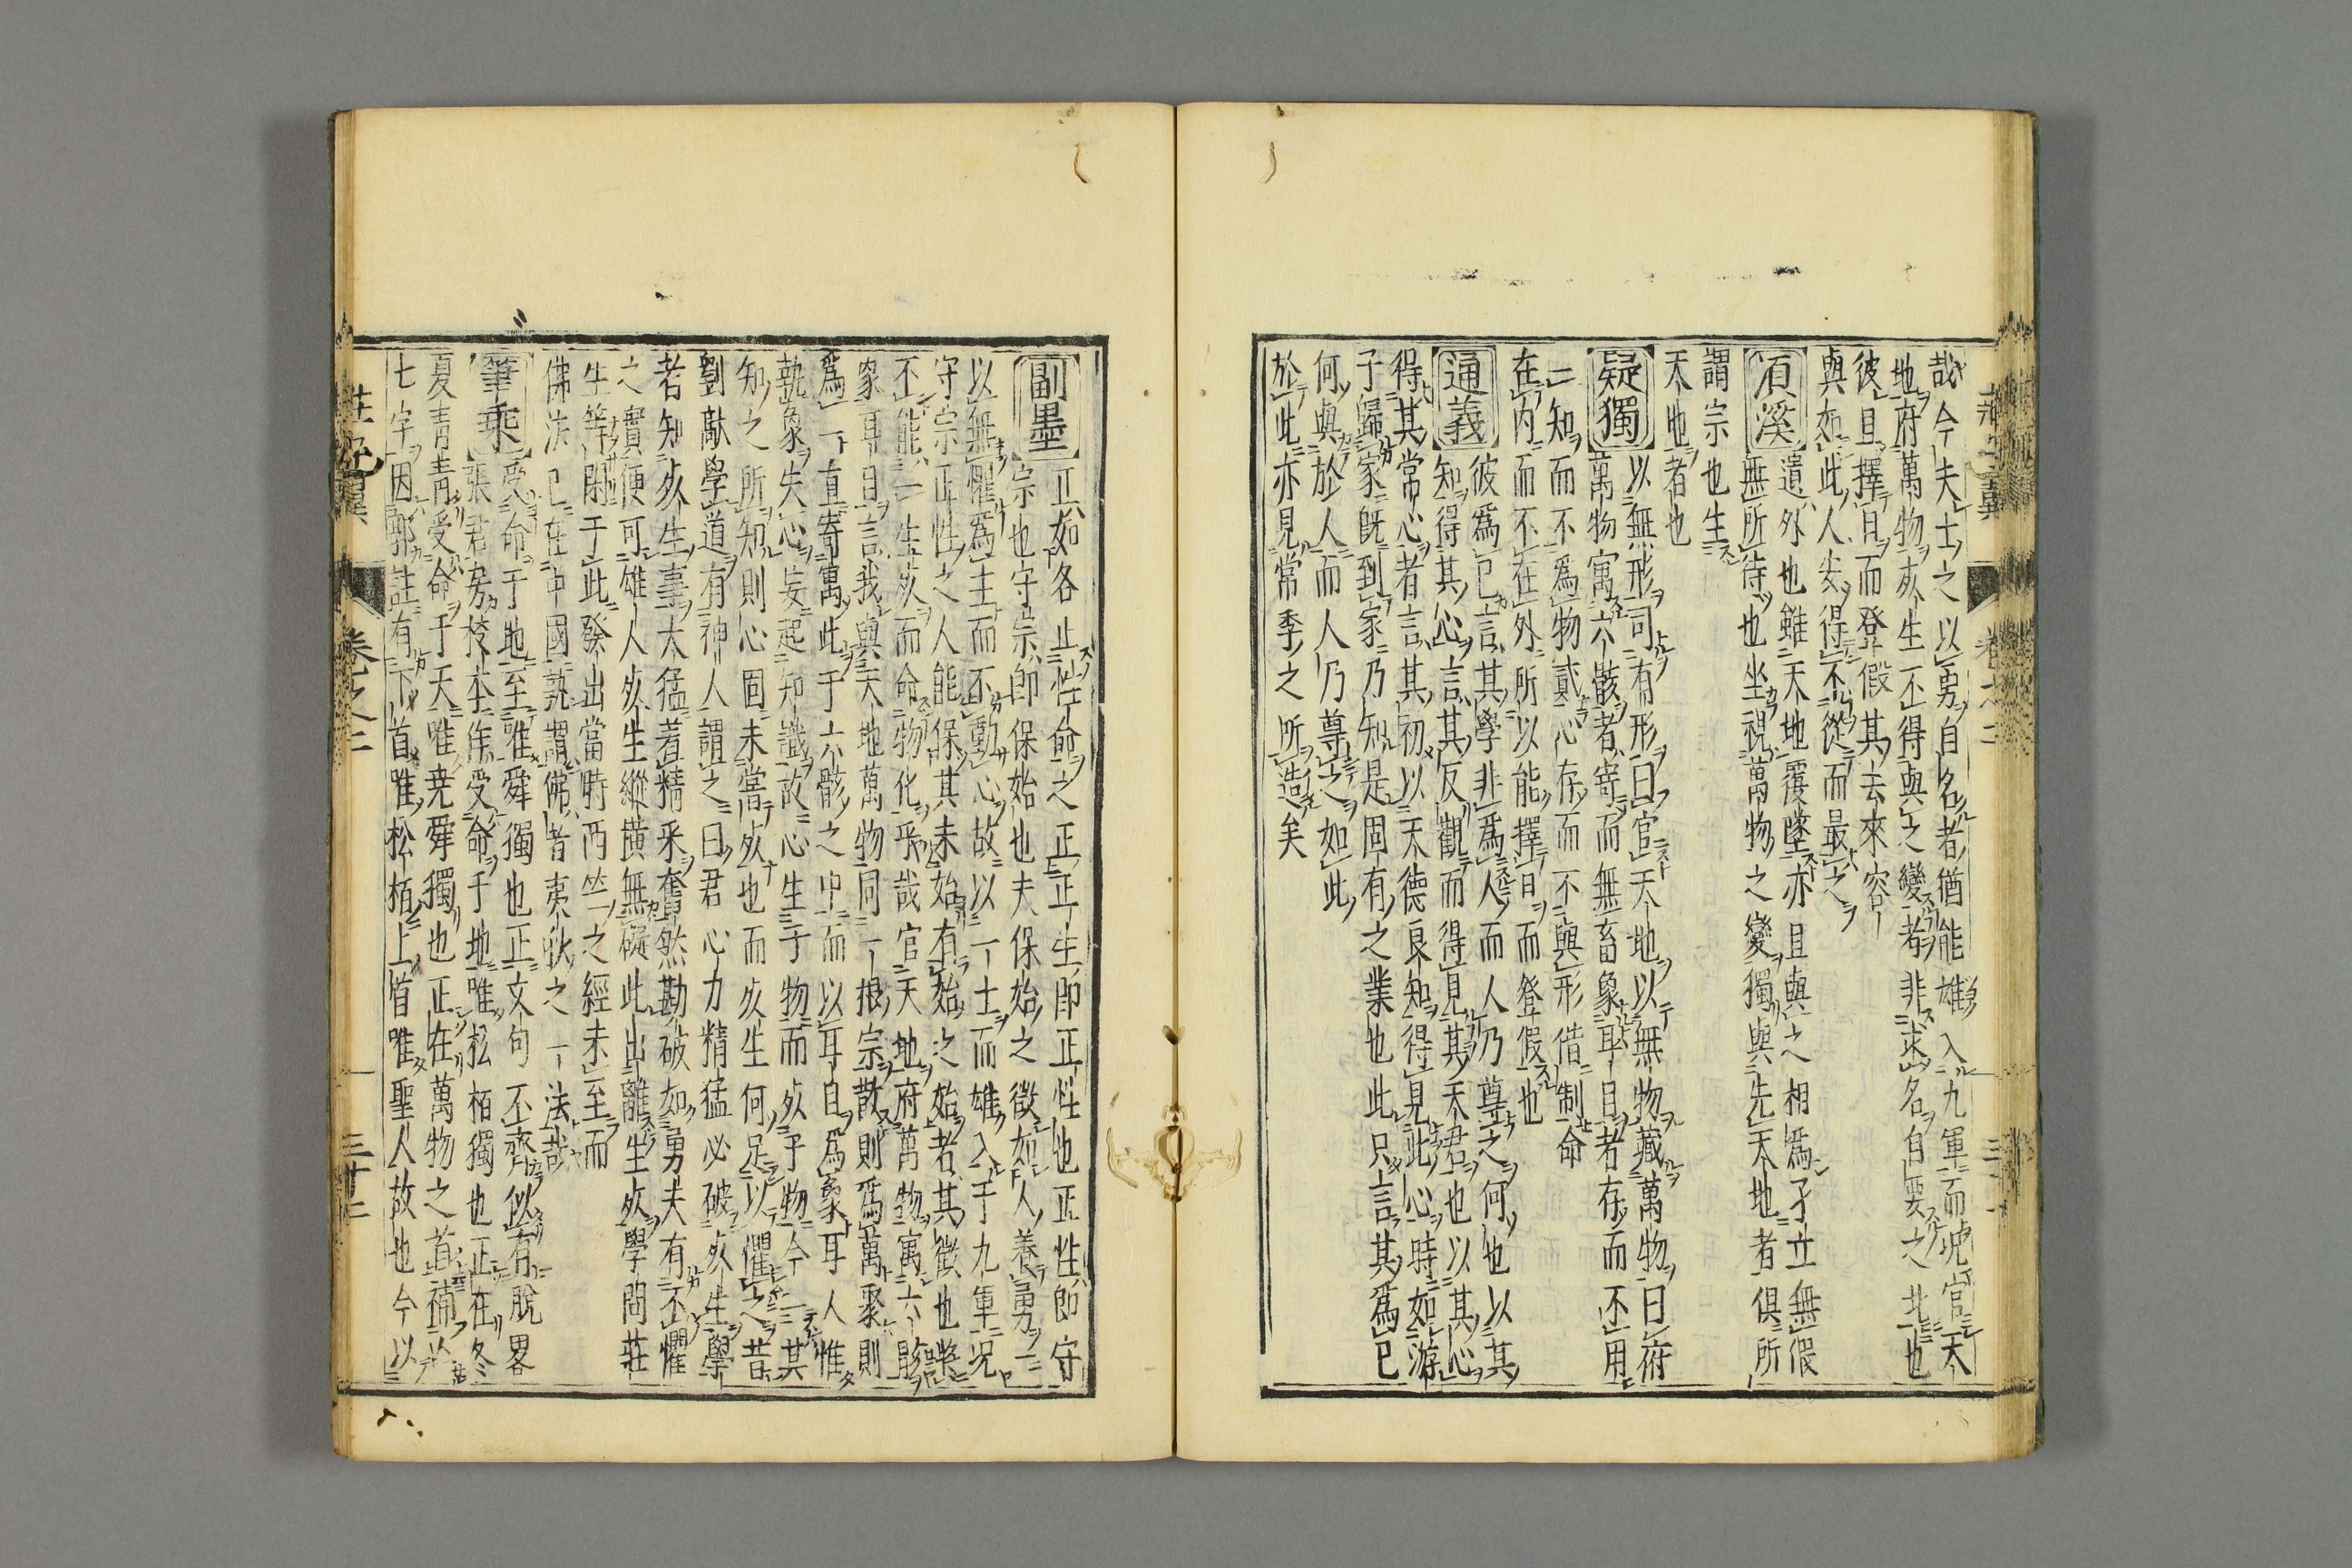 哉今夫士之以勇自名者猶能雄入九軍而况官天
地府萬物死生不得與之變者非求名自要之北也
彼且擇日而登假其去來容
與如此人安得不從而最之
須溪
遺外也雖天地覆墜亦且與之相爲孑立無假
無所待也坐視萬物之變獨與先天地者俱所
謂宗也生
天地者也
疑獨
以無形司有形曰官天地以無物藏萬物曰府
萬物寓六骸者寄而無畜象耳目者存而不用
一知而不爲物貳心存而不與形借制命
在内而不在外所以能擇日而登假也
通義
彼爲己言其學非爲人而人乃尊之何也以其
知得其心言其反觀而得見其天君也以其心
得其常心者言其初以天德良知得見此心時如游
子歸家旣到家乃知是固有之業也此只言其爲己
何與於人而人乃尊之如此
於此亦見常季之所造矣
副墨
正如各止性命之正正生即正性也正性即守
宗也守宗即保始也夫保始之徵如人養勇一
以無懼爲主而不動心故以一士而雄入于九軍况
守宗正性之人能保其未始有始之始者其徵也將
不能一生死而命物化乎哉官天地府萬物寓六骸
象耳目言我與天地萬物同一根宗散則爲萬聚則
爲一直寄寓此于六骸之中而以耳目爲象耳人惟
執象失心妄起知識故心生于物而死于物今一其
知之所知則心固未嘗死也而死生何足以懼之昔
劉獻學道有神人謂之曰君心力精猛必破死生學
若知死生事大猛着精采奮然勘破如勇夫有不懼
之實便可雄人死生縱横無礙此出離生死學問莊
生等閑于此發出當時西竺之經未至而
佛法已在中國孰謂佛者夷狄之一法哉
筆乘
受命于地至唯舜獨也正文句不齊似有脫畧
張君房校本作受命于地唯松栢獨也正在冬
夏青青受命于天唯堯舜獨也正在萬物之首補亡
七字因郭註有下首唯松栢上首唯聖人故也今以
莊子翼
卷之二
三十二